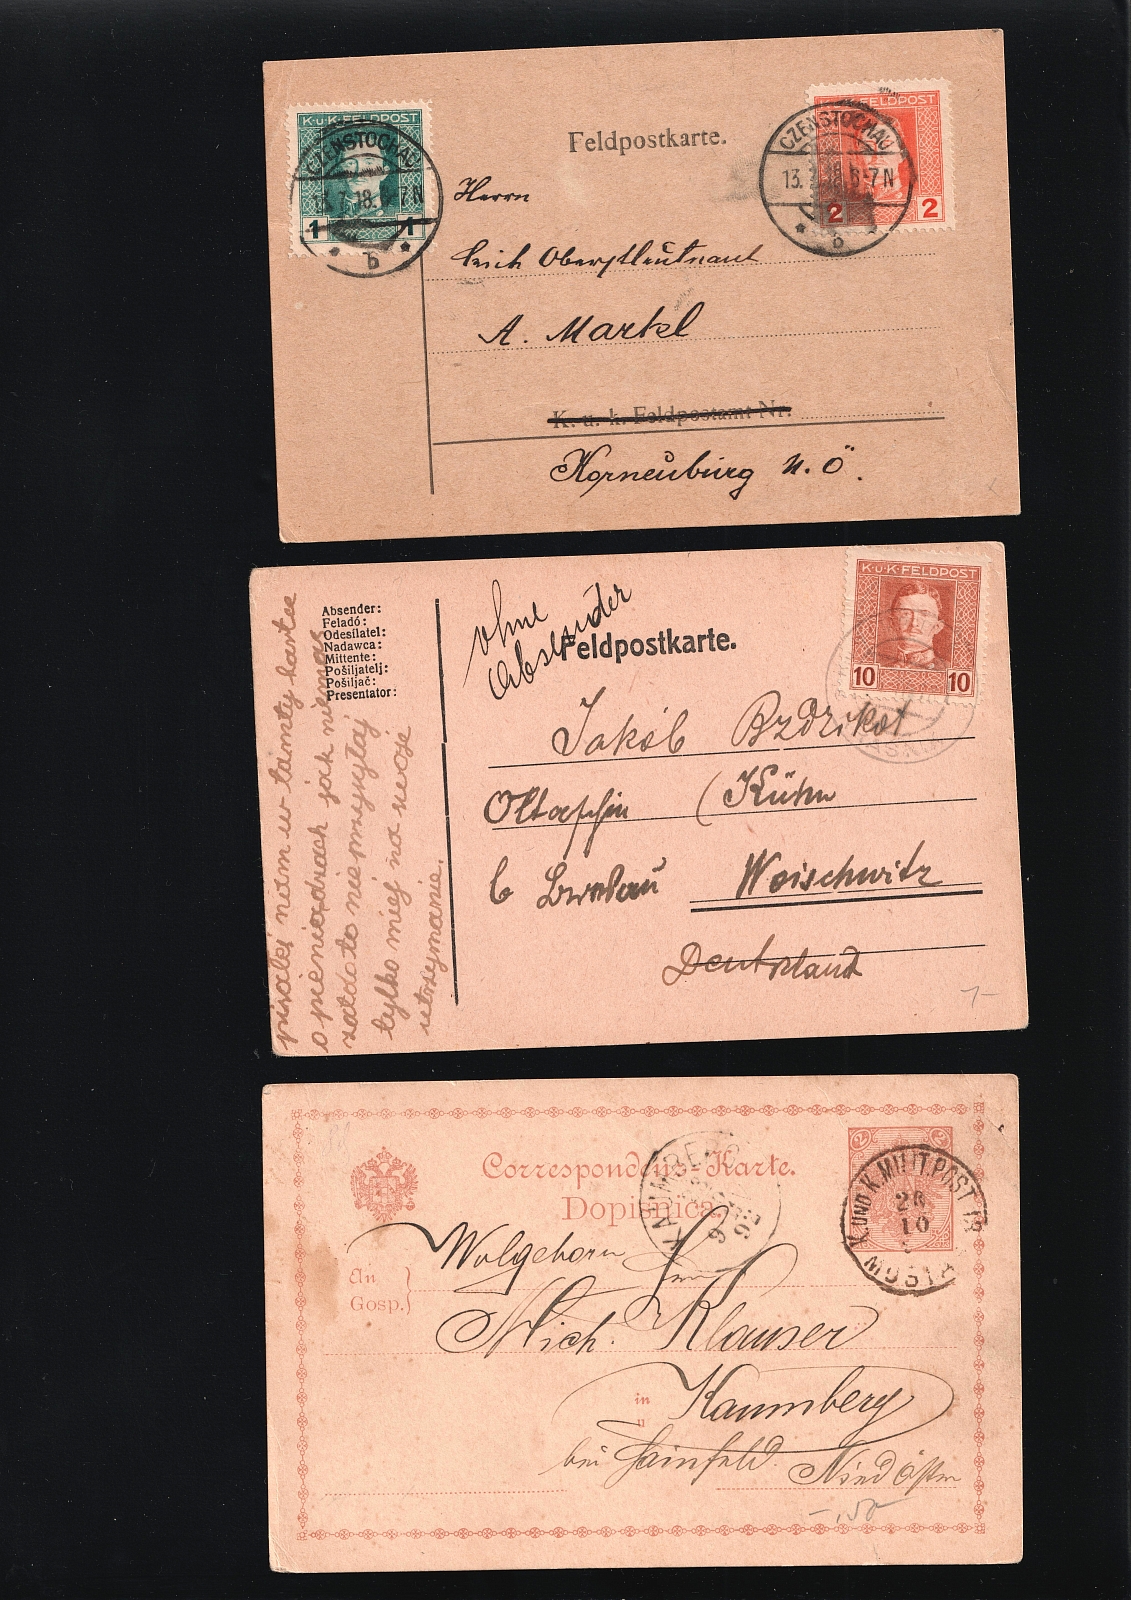 K.u.K. FELDPOST
1 1
CZENSTOCHAU
7.18. 7N
b
Feldpostkarte.
K.u.K. FELDPOST
2 2
CZENSTOCHAU
13. 7.18. 6-7N
b
Herrn
Oberstleutnant
A. Martel
K. u. k. Feldpostamt Nr.
Korneuburg N. Ö.
Absender:
Feladó:
Odesílatel:
Nadawca:
Mittente:
Pošiljatelj:
Pošiljač:
Presentator:
pisałej nam w tamty kartce
o pieniądzach jak niemas
zato to nie
tylko miej na swoje
utrzymanie.
ohne
Absender
Feldpostkarte.
K.u.K. FELDPOST
10 10
Jakób Bzdzikot
Oltaschin (Kühn
b Breslau Woischwitz
Deutschland
1-
Correspondenz-Karte.
Dopisnica.
KAUMBERG
2 2
K. UND K. MILIT. POST
26
10
MOSTA
An
Gosp.
Wolgeborn
Mich. Klauser
in
u
Kaumberg
bei Hainfeld. Nied Östr